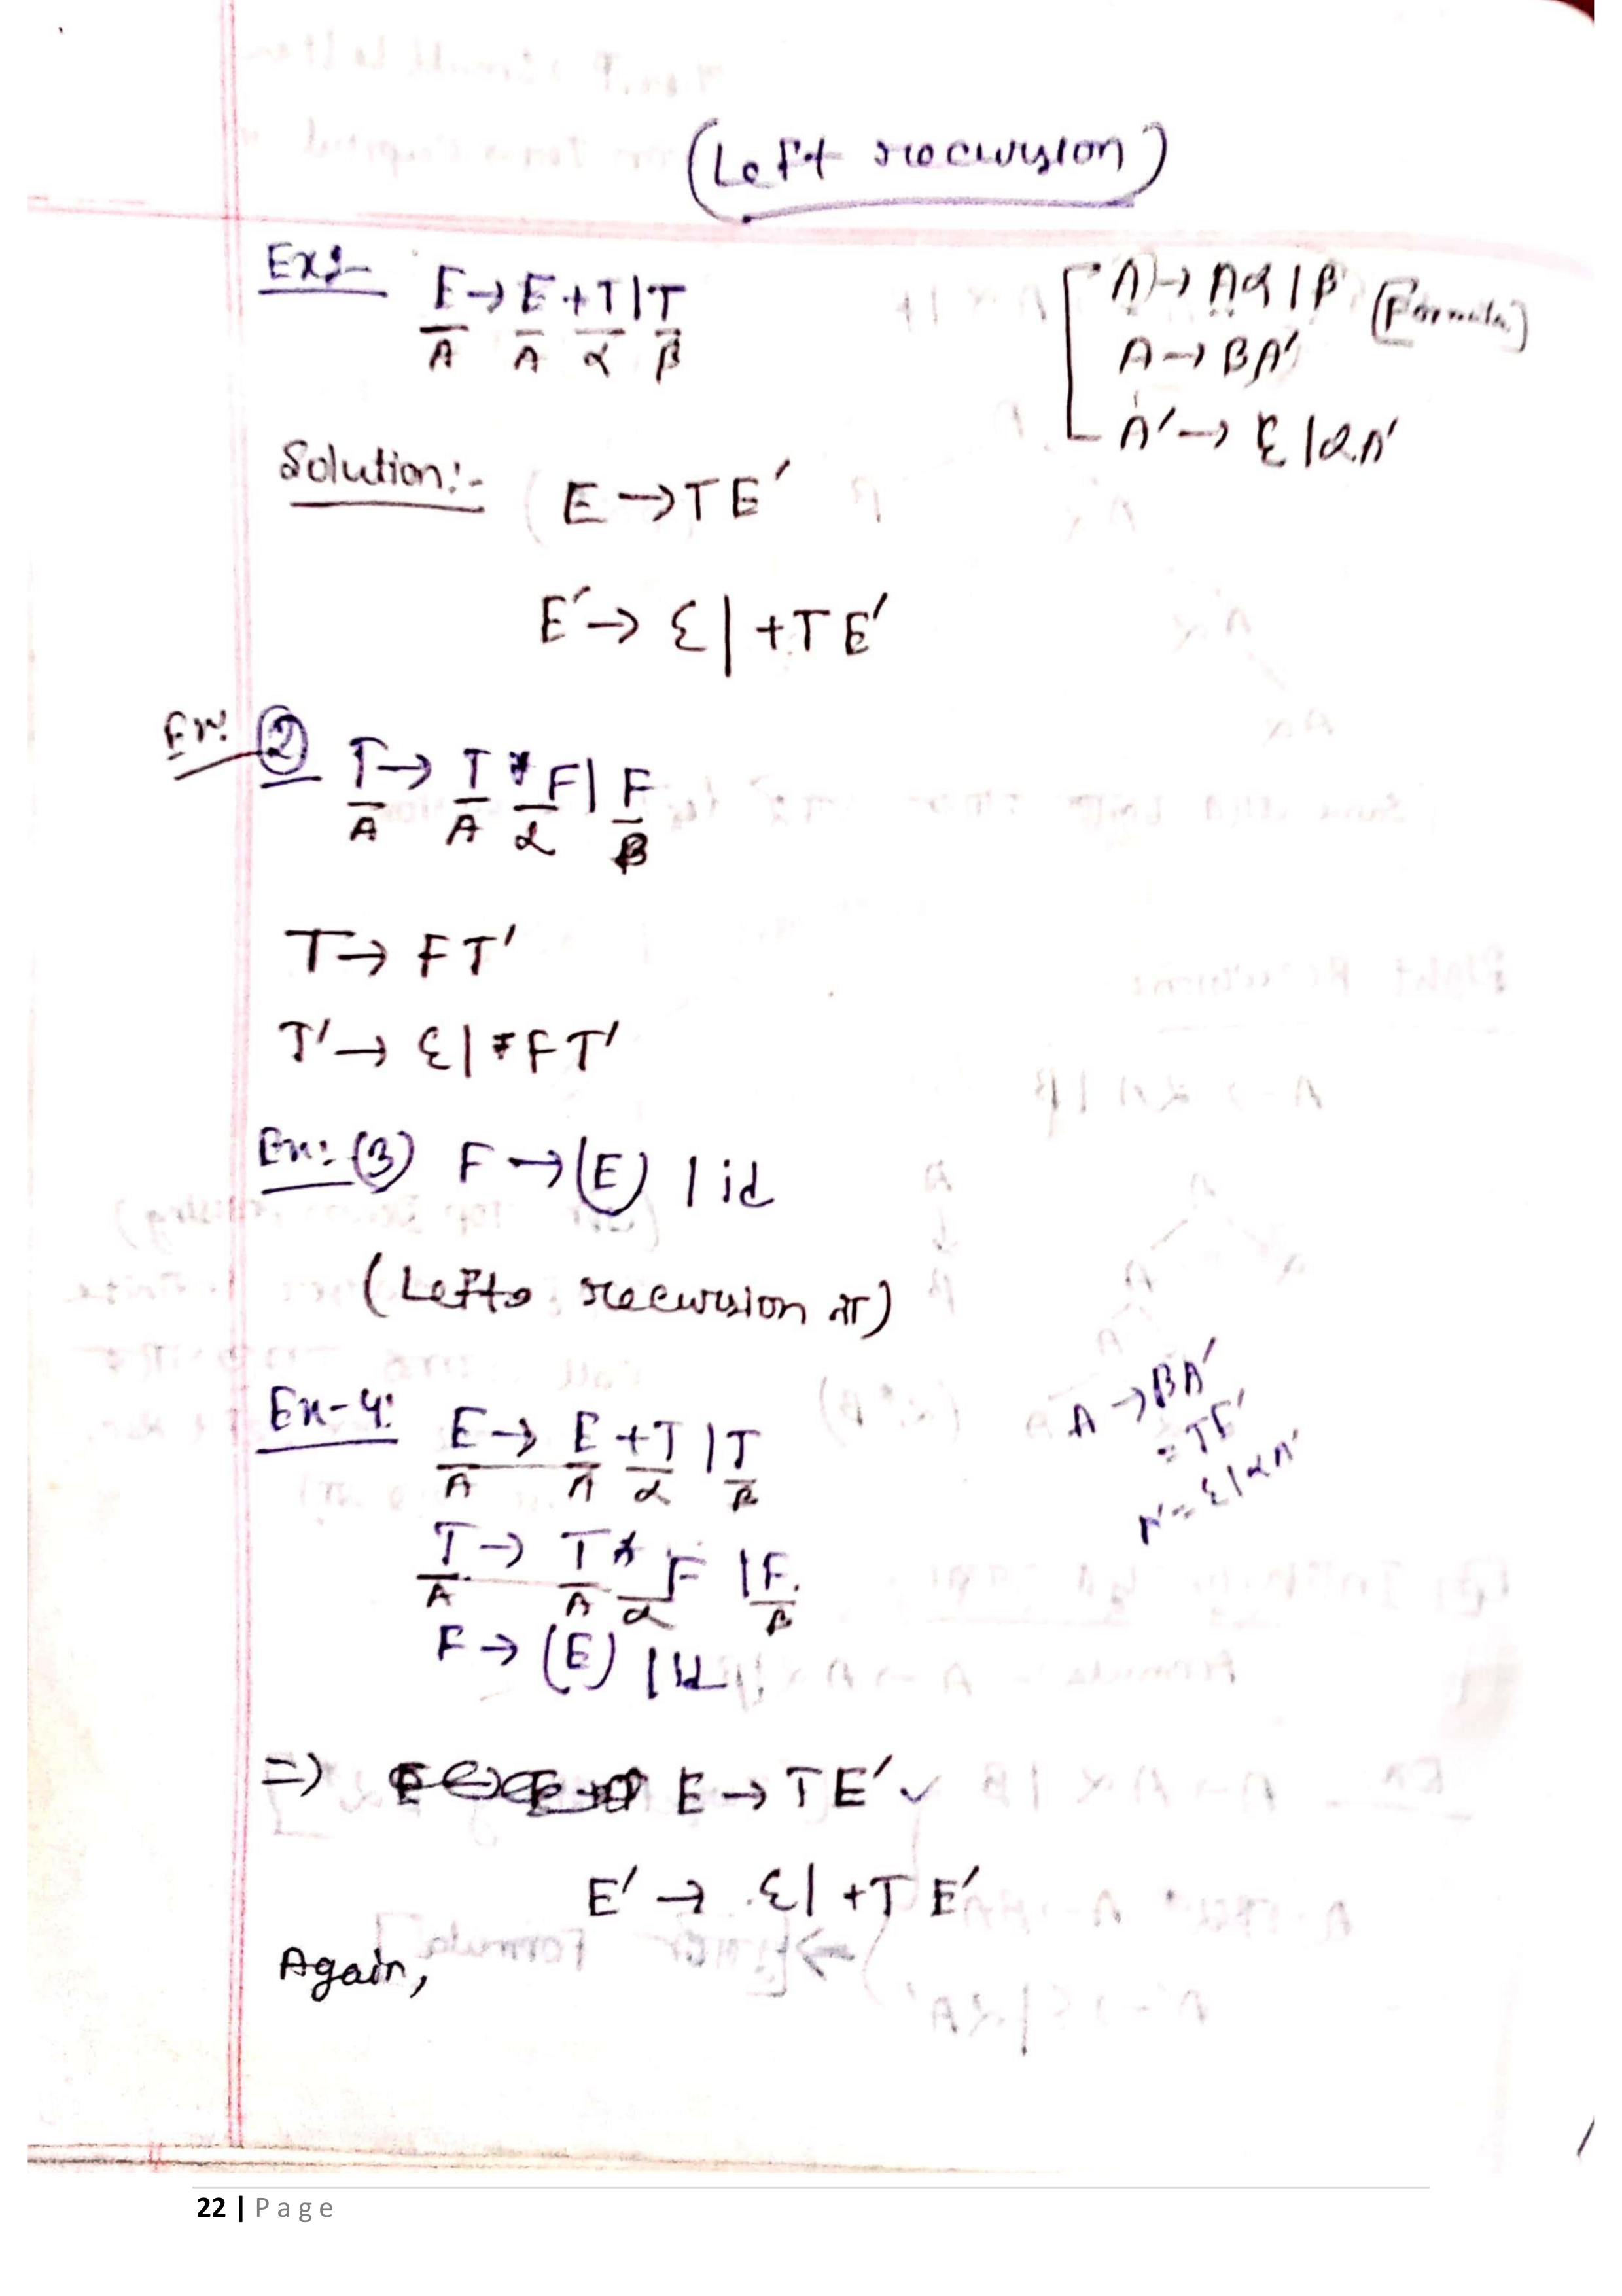 (Left recursion)
Ex:-
E → E + T | T
A A α β
A → Aα | β [Formula]
A → βA'
A' → ε | αA'
Solution:-
E → TE'
E' → ε | +TE'
Ex: ②
T → T * F | F
A A α β
T → FT'
T' → ε | *FT'
Ex: (3) F → (E) | id
(Left recursion না)
Ex-4:
E → E + T | T
A A α β
T → T * F | F
A A α β
F → (E) | id
A → βA'
= TE'
A' = ε | αA'
⇒ E → TE' ✓
E' → ε | +TE'
Again,
22 | Page